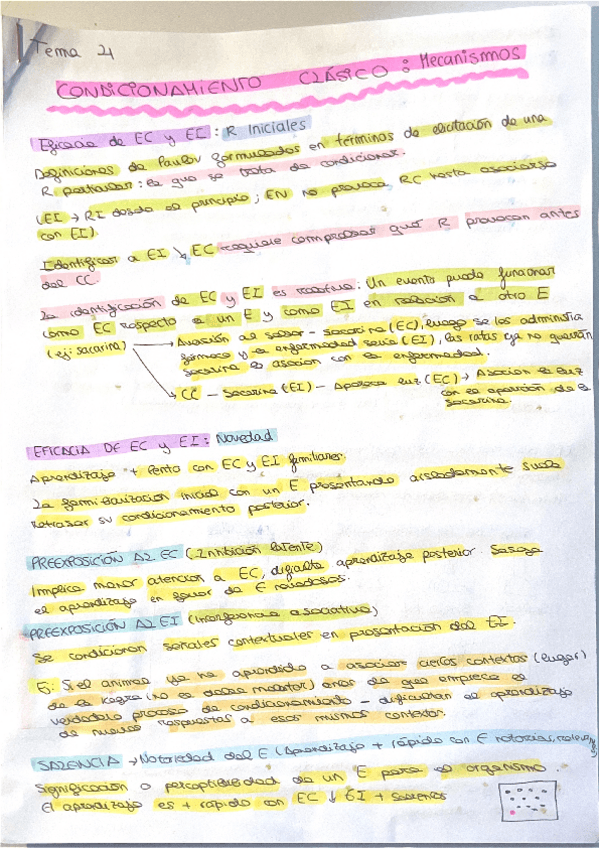 Tema 4
CONDICIONAMIENTO CLÁSICO: Mecanismos
Eficacia de EC y EI: R Iniciales
Definiciones de Paulov formuladas en términos de elicitación de una
R particular: la que se trata de condicionar.
(EI → RI desde el principio; EN no provoca RC hasta asociarse
con EI).
Identificar a EI ↘ EC requiere comprobar qué R provocan antes
del CC
La identificación de EC y EI es relativa: Un evento puede funcionar
como EC respecto a un E y como EI en relación a otro E
(ej: sacarina) → Aversión al sabor - sacarina (EC), luego se les administra
fármaco y la enfermedad sería (EI), las ratas ya no querrán
sacarina la asocian con la enfermedad.
↘ CC - Sacarina (EI) - Aparece luz (EC) → Asocian la luz
con la aparición de la
sacarina.
EFICACIA DE EC y EI: Novedad
Aprendizaje + lento con EC y EI familiares.
La familiarización inicial con un E presentando aisladamente suele
retrasar su condicionamiento posterior.
PREEXPOSICIÓN AL EC (Inhibición latente)
Implica menor atención a EC, dificulta aprendizaje posterior. Sesga
el aprendizaje en favor de E novedosos.
PREEXPOSICIÓN AL EI (Interferencia asociativa)
Se condicionan señales contextuales en presentación del EI.
Ej: Si el animal ya ha aprendido a asociar ciertos contextos (lugar)
de la
verdadero proceso de condicionamiento - dificultan el aprendizaje
de nuevas respuestas a esos mismos contextos.
SALIENCIA → Notoriedad del E (Aprendizaje + rápido con E notorios,
Significación o perceptibilidad de un E para el organismo
El aprendizaje es + rápido con EC ↓ EI + salientes